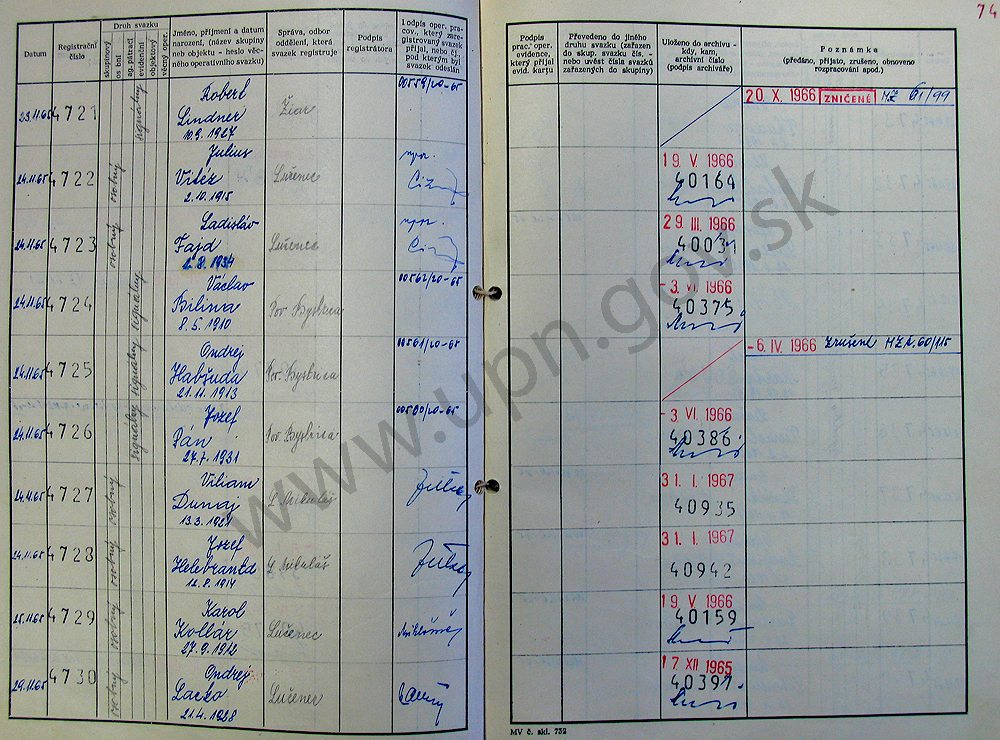 74
Datum
Registrační číslo
Druh svazku
skupinový
osobní
ag. pátrací
evidenční
objektový
věcný oper.
Jméno, příjmení a datum
narození, (název skupiny
neb objektu - heslo věc-
ného operativního svazku)
Správa, odbor
oddělení, která
svazek registruje
Podpis
registrátora
Podpis oper. pra-
cov., který zare-
gistrovaný svazek
přijal, nebo čí.
pod kterým byl
svazek odeslán
Podpis
prac. oper.
evidence,
který přijal
evid. kartu
Převedeno do jiného
druhu svazku (zařazen
do skup. svazku čís. -
nebo uvést čísla svazků
zařazených do skupiny)
Uloženo do archivu -
kdy, kam,
archivní číslo
(podpis archiváře)
Poznámka
(předáno, přijato, zrušeno, obnoveno
rozpracování apod.)
23.11.65 4721 signálny Robert Lindner 10.9.1927 Žiar 00559/20-65 20. X. 1966 ZNIČENÉ MZ 61/99
24.11.65 4722 osobný Július Vitéz 2.10.1915 Lučenec 19. V. 1966 40164
24.11.65 4723 osobný Ladislav Fajd 2.8.1934 Lučenec 29. III. 1966 40031
24.11.65 4724 signálny Václav Bilina 8.5.1910 Pov. Bystrica 00562/20-65 -3. VI. 1966 40375
24.11.65 4725 signálny Ondrej Habšuda 21.11.1913 Pov. Bystrica 00561/20-65 -6. IV. 1966 Zrušené MZA 60/115
24.11.65 4726 signálny Jozef Pán 27.7.1931 Pov Bystrica 00560/20-65 -3. VI. 1966 40386
24.11.65 4727 osobný Viliam Dunaj 13.3.1921 L. Mikuláš 31. I. 1967 40935
24.11.65 4728 osobný Jozef Helebrandt 12.8.1914 L. Mikuláš 31. I. 1967 40942
25.11.65 4729 osobný Karol Kollár 27.9.1912 Lučenec 19. V. 1966 40159
29.11.65 4730 osobný Ondrej Lacko 21.4.1928 Lučenec 17 XII 1965 40397
MV č. skl. 752
www.upn.gov.sk